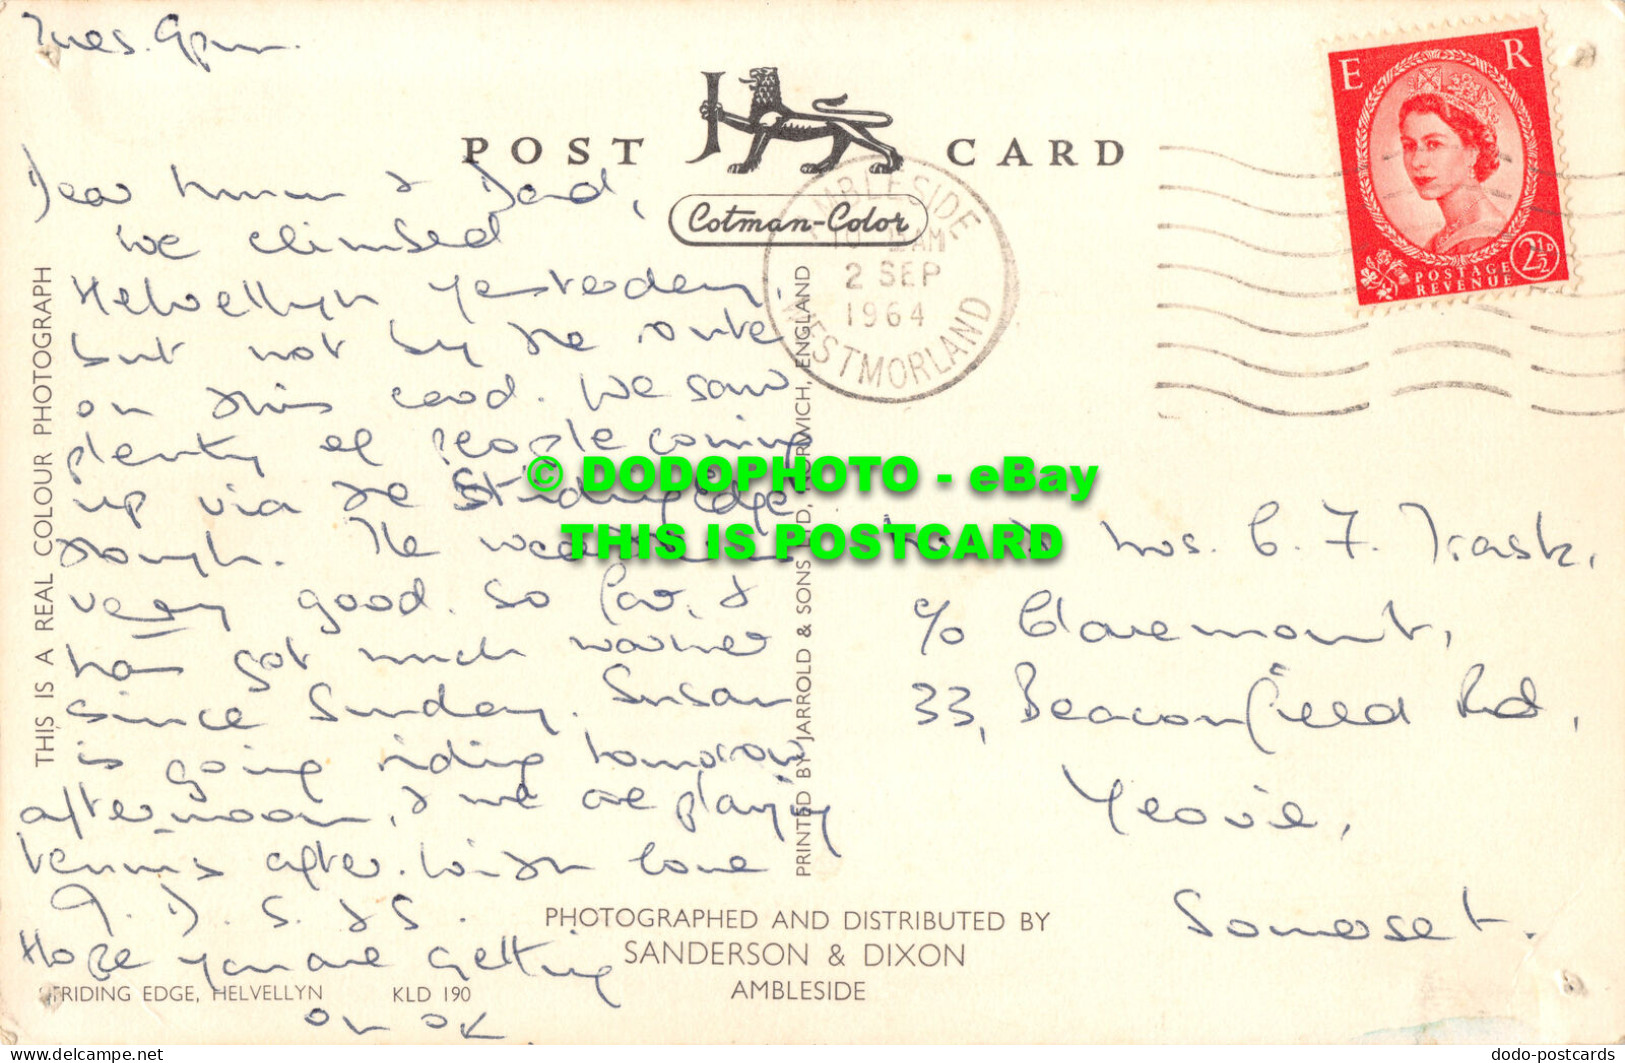 Tues. 9pm.
POST CARD
Cotman-Color
E R
POSTAGE
REVENUE
2½D
AMBLESIDE
10 15 AM
2 SEP
1964
WESTMORLAND
Dear Mum & Dad,
We climbed
Helvellyn yesterday,
but not by the route
on this card. We saw
plenty of people coming
up via the Striding Edge
though. The weather is
very good so far, &
has got much warmer
since Sunday. Susan
is going riding tomorrow
afternoon, & we are playing
tennis after. With love
J. S. & S.
Hope you are getting
on OK
Mr & Mrs. C. F. Trask,
c/o Claremount,
33, Beaconfield Rd,
Yeovil,
Somerset.
THIS IS A REAL COLOUR PHOTOGRAPH
PRINTED BY JARROLD & SONS LTD, NORWICH, ENGLAND
PHOTOGRAPHED AND DISTRIBUTED BY
SANDERSON & DIXON
AMBLESIDE
STRIDING EDGE, HELVELLYN KLD 190
© DODOPHOTO - eBay
THIS IS POSTCARD
dodo-postcards